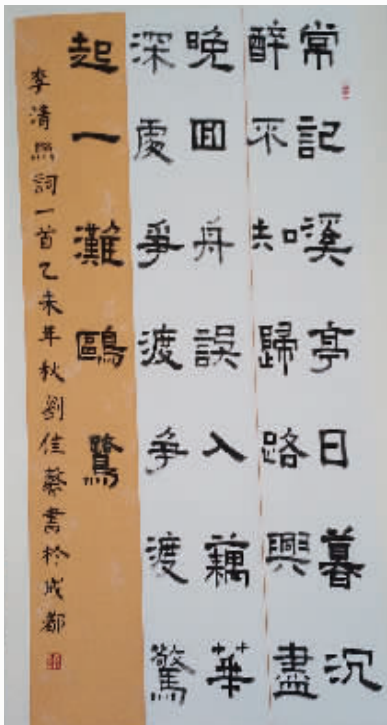 常記溪亭日暮沉
醉不知歸路興盡
晚回舟誤入藕華
深處爭渡爭渡驚
起一灘鷗鷺
李清照詞一首乙未年秋劉佳藝書於成都